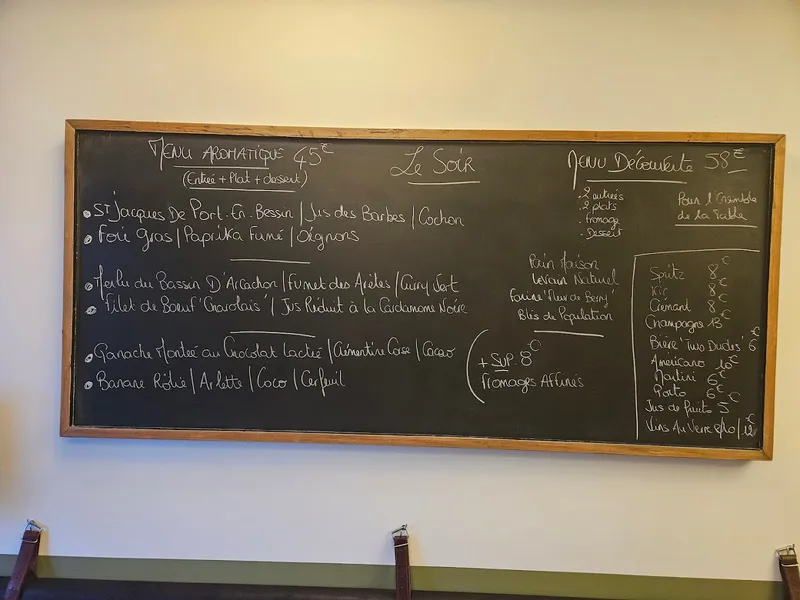 Menu Aromatique 45€
(Entrée + Plat + dessert)
St Jacques De Port-En-Bessin / Jus des Barbes / Cochon
Foie Gras / Paprika Fumé / Oignons
Merlu du Bassin D'Arcachon / Fumet des Arêtes / Curry Vert
Filet de Boeuf 'Charolais' / Jus Réduit à la Cardamone Noire
Ganache Montée au Chocolat Lacté / Clémentine Corse / Cacao
Banane Rôtie / Arlette / Coco / Cerfeuil
Le Soir
Pain Maison
Levain Naturel
Farine 'Fleur de Berry'
Blés de Population
+ Sup. 8€
Fromages Affinés
Menu Découverte 58€
. 2 entrées
. 2 plats
. fromage
. Dessert
Pour l'Ensemble
de la Table
Spritz 8€
Kir 8€
Crémant 8€
Champagne 13€
Bière 'Two Dudes' 6€
Americano 10€
Martini 6€
Porto 6€
Jus de fruits 5€
Vins Au Verre 8/10/12€